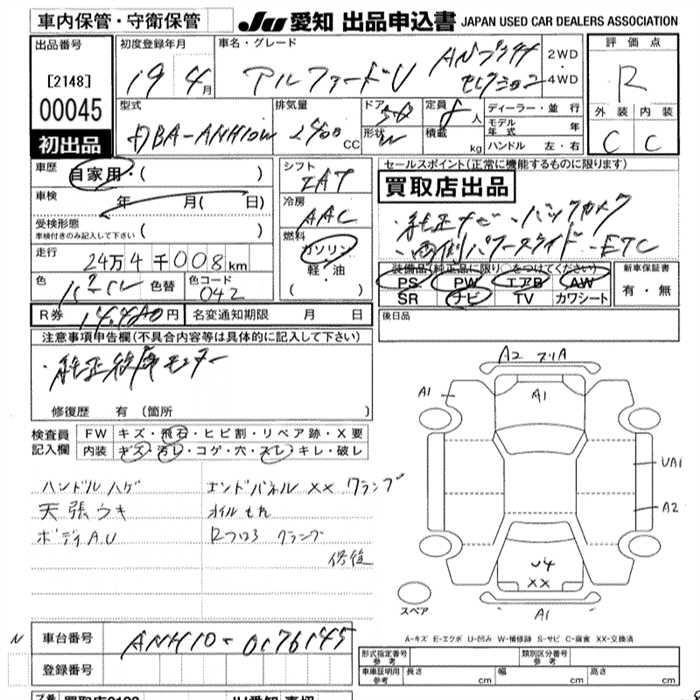 車内保管・守衛保管
JU 愛知 出品申込書 JAPAN USED CAR DEALERS ASSOCIATION
出品番号
[2148]
00045
初出品
初度登録年月
19 4月
車名・グレード
アルファードV ANプラチナ
セレクション
2WD
4WD
評価点
R
外装 内装
C C
型式
DBA-ANH10W
排気量
2400cc
ドア
5D
形状
W
定員
8人
積載 kg
ディーラー・並行
モデル年式 年
ハンドル 左・右
車歴
自家用・( )
車検
年 月( 日)
受検形態
車検付きのみ記入して下さい ( )
走行
24万4千008km
色
色替
色コード
042
R券
円
名変通知期限 月 日
シフト
IAT
冷房
AAC
燃料
ガソリン
軽・油
セールスポイント(正常に機能するものに限ります)
買取店出品
・純正ナビ・バックカメラ
・両側パワースライド・ETC
装備品(純正品に限り○をつけてください)
PS PW エアB AW
SR ナビ TV カワシート
新車保証書
有・無
後日品
注意事項申告欄(不具合内容等は具体的に記入して下さい)
・純正後席モニター
修復歴 有(箇所 )
検査員
記入欄
FW キズ・飛石・ヒビ割・リペア跡・X要
内装 キズ・汚レ・コゲ・穴・スレ・キレ・破レ
ハンドルハゲ
天張ウキ
ボディA.U
エンドパネル XX クランプ
オイルもれ
Rフロア クランプ
修復
A2 フリA
A1
A1
UA1
A2
U4
XX
A1
スペア
A-キズ E-エクボ U-凹み W-補修跡 S-サビ C-腐食 XX-交換済
N
車台番号
ANH10-0176145
登録番号
形式指定番号
参考
類別区分番号
参考
車庫証明用
参考
長さ cm 幅 cm 高さ cm